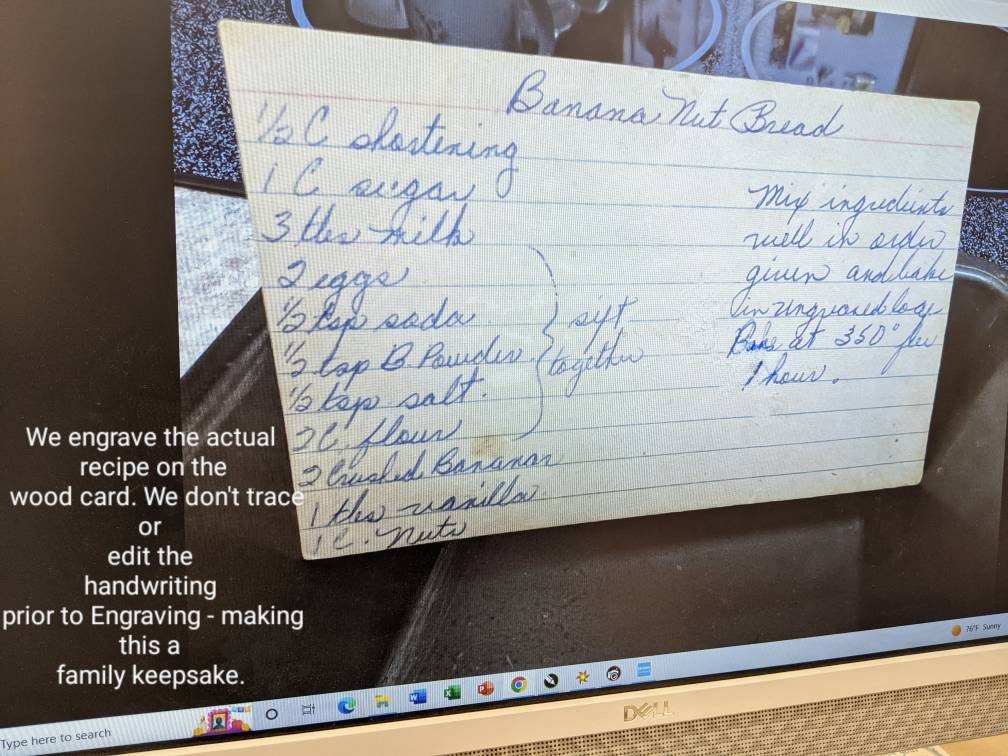 Banana Nut Bread
1/2 C shortening
1 C sugar
3 tbs milk
2 eggs
1/2 tsp soda
1/2 tsp B. Powder
1/2 tsp salt.
2 C. flour
2 Crushed Bananas
1 tbs vanilla
1 C. Nuts
sift
together
Mix ingredients
well in order
given and bake
in ungreased loaf
Bake at 350° for
1 hour.
We engrave the actual
recipe on the
wood card. We don't trace
or
edit the
handwriting
prior to Engraving - making
this a
family keepsake.
76°F Sunny
Type here to search
DELL